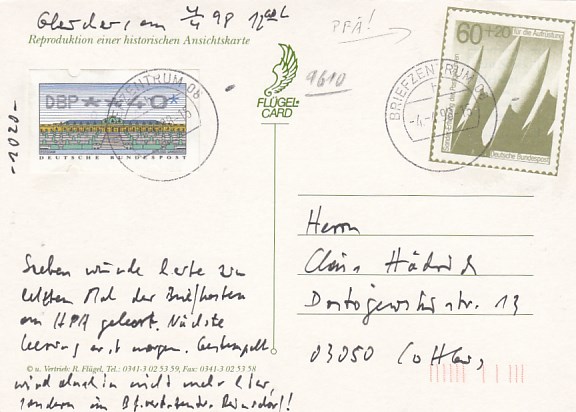 am 4/4 98
PFÄ!
Reproduktion einer historischen Ansichtskarte
9610
DBP **40*
DEUTSCHE BUNDESPOST
BRIEFZENTRUM 06
BRIEFZENTRUM 06
-4.-4.98-15
60+20 für die Aufrüstung
Deutsche Bundespost
FLÜGEL-
CARD
-1020-
Herrn
Claus Hädrich
Dostojewskistr. 13
03050 Cottbus
Soeben wurde heute zum
letzten Mal der Briefkasten
am HPA geleert. Nächste
Leerung erst morgen. Gestempelt
© u. Vertrieb: R. Flügel, Tel.: 0341-3 02 53 59, Fax: 0341-3 02 53 58
wird danach nicht mehr hier,
sondern im